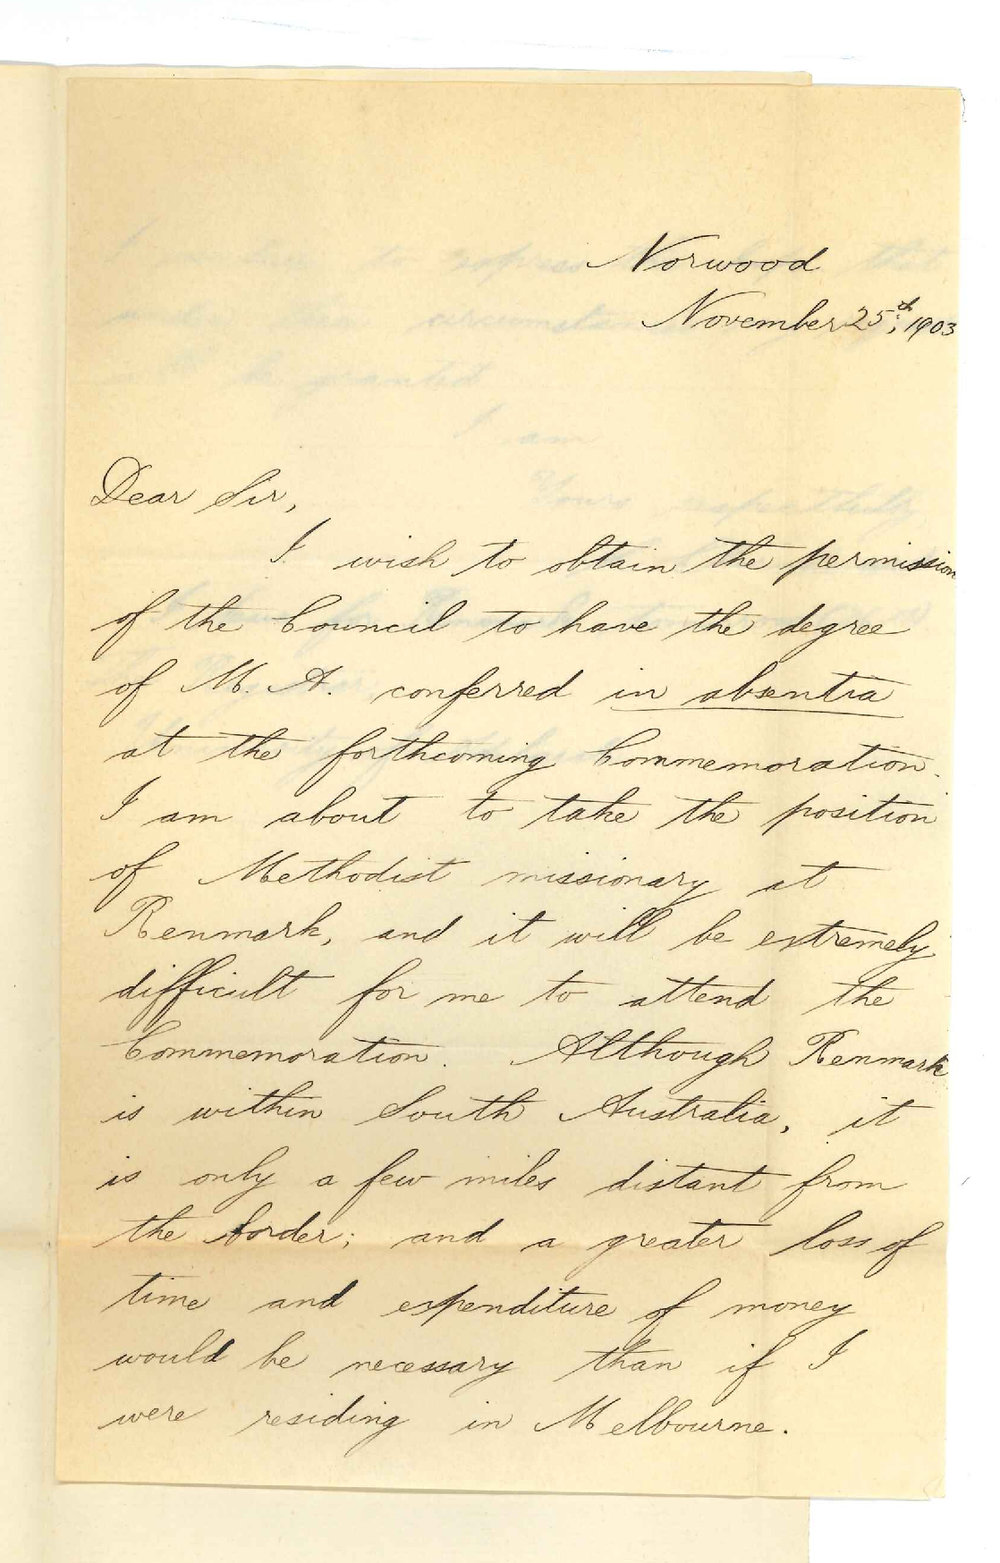 Norwood
November 25th, 1903
Dear Sir,
I wish to obtain the permission
of the Council to have the degree
of M. A. conferred in absentia
at the forthcoming Commemoration.
I am about to take the position
of Methodist missionary at
Renmark, and it will be extremely
difficult for me to attend the
Commemoration. Although Renmark
is within South Australia, it
is only a few miles distant from
the border; and a greater loss of
time and expenditure of money
would be necessary than if I
were residing in Melbourne.